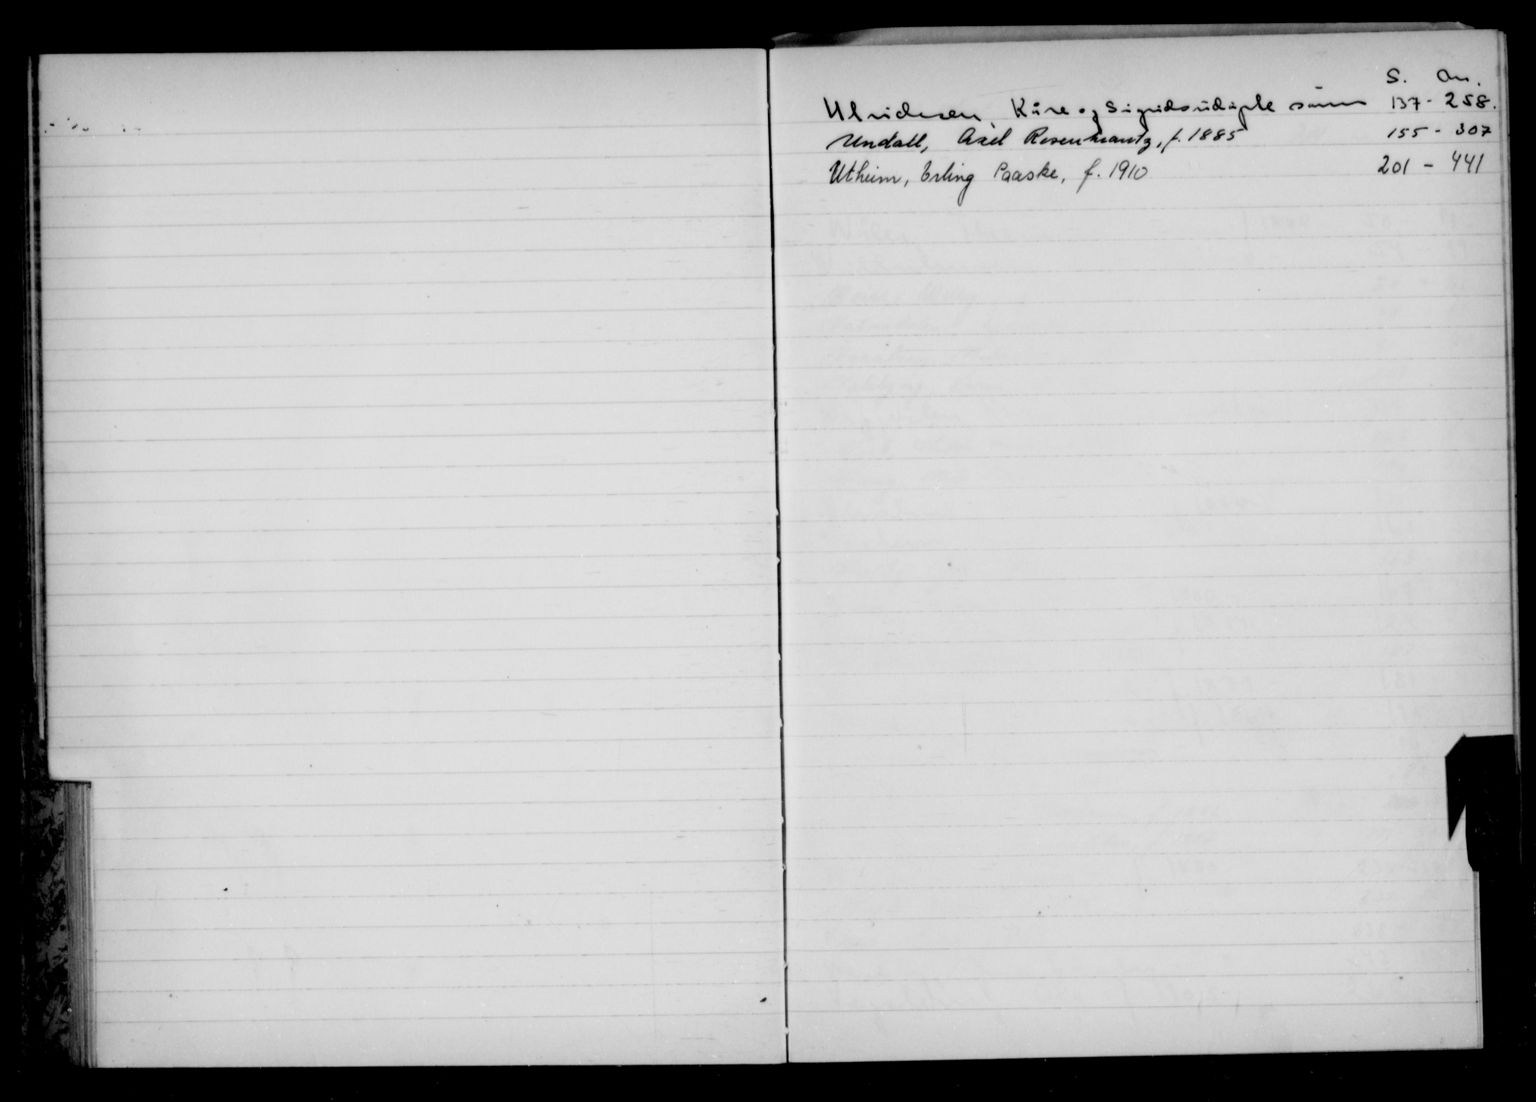 S. An.
Ulrichsen, Kåre og Sigrids udøpte sønn 137 - 258.
Undall, Axel Rosenkrantz, f. 1885 155 - 307
Utheim, Erling Paaske, f. 1910 201 - 441